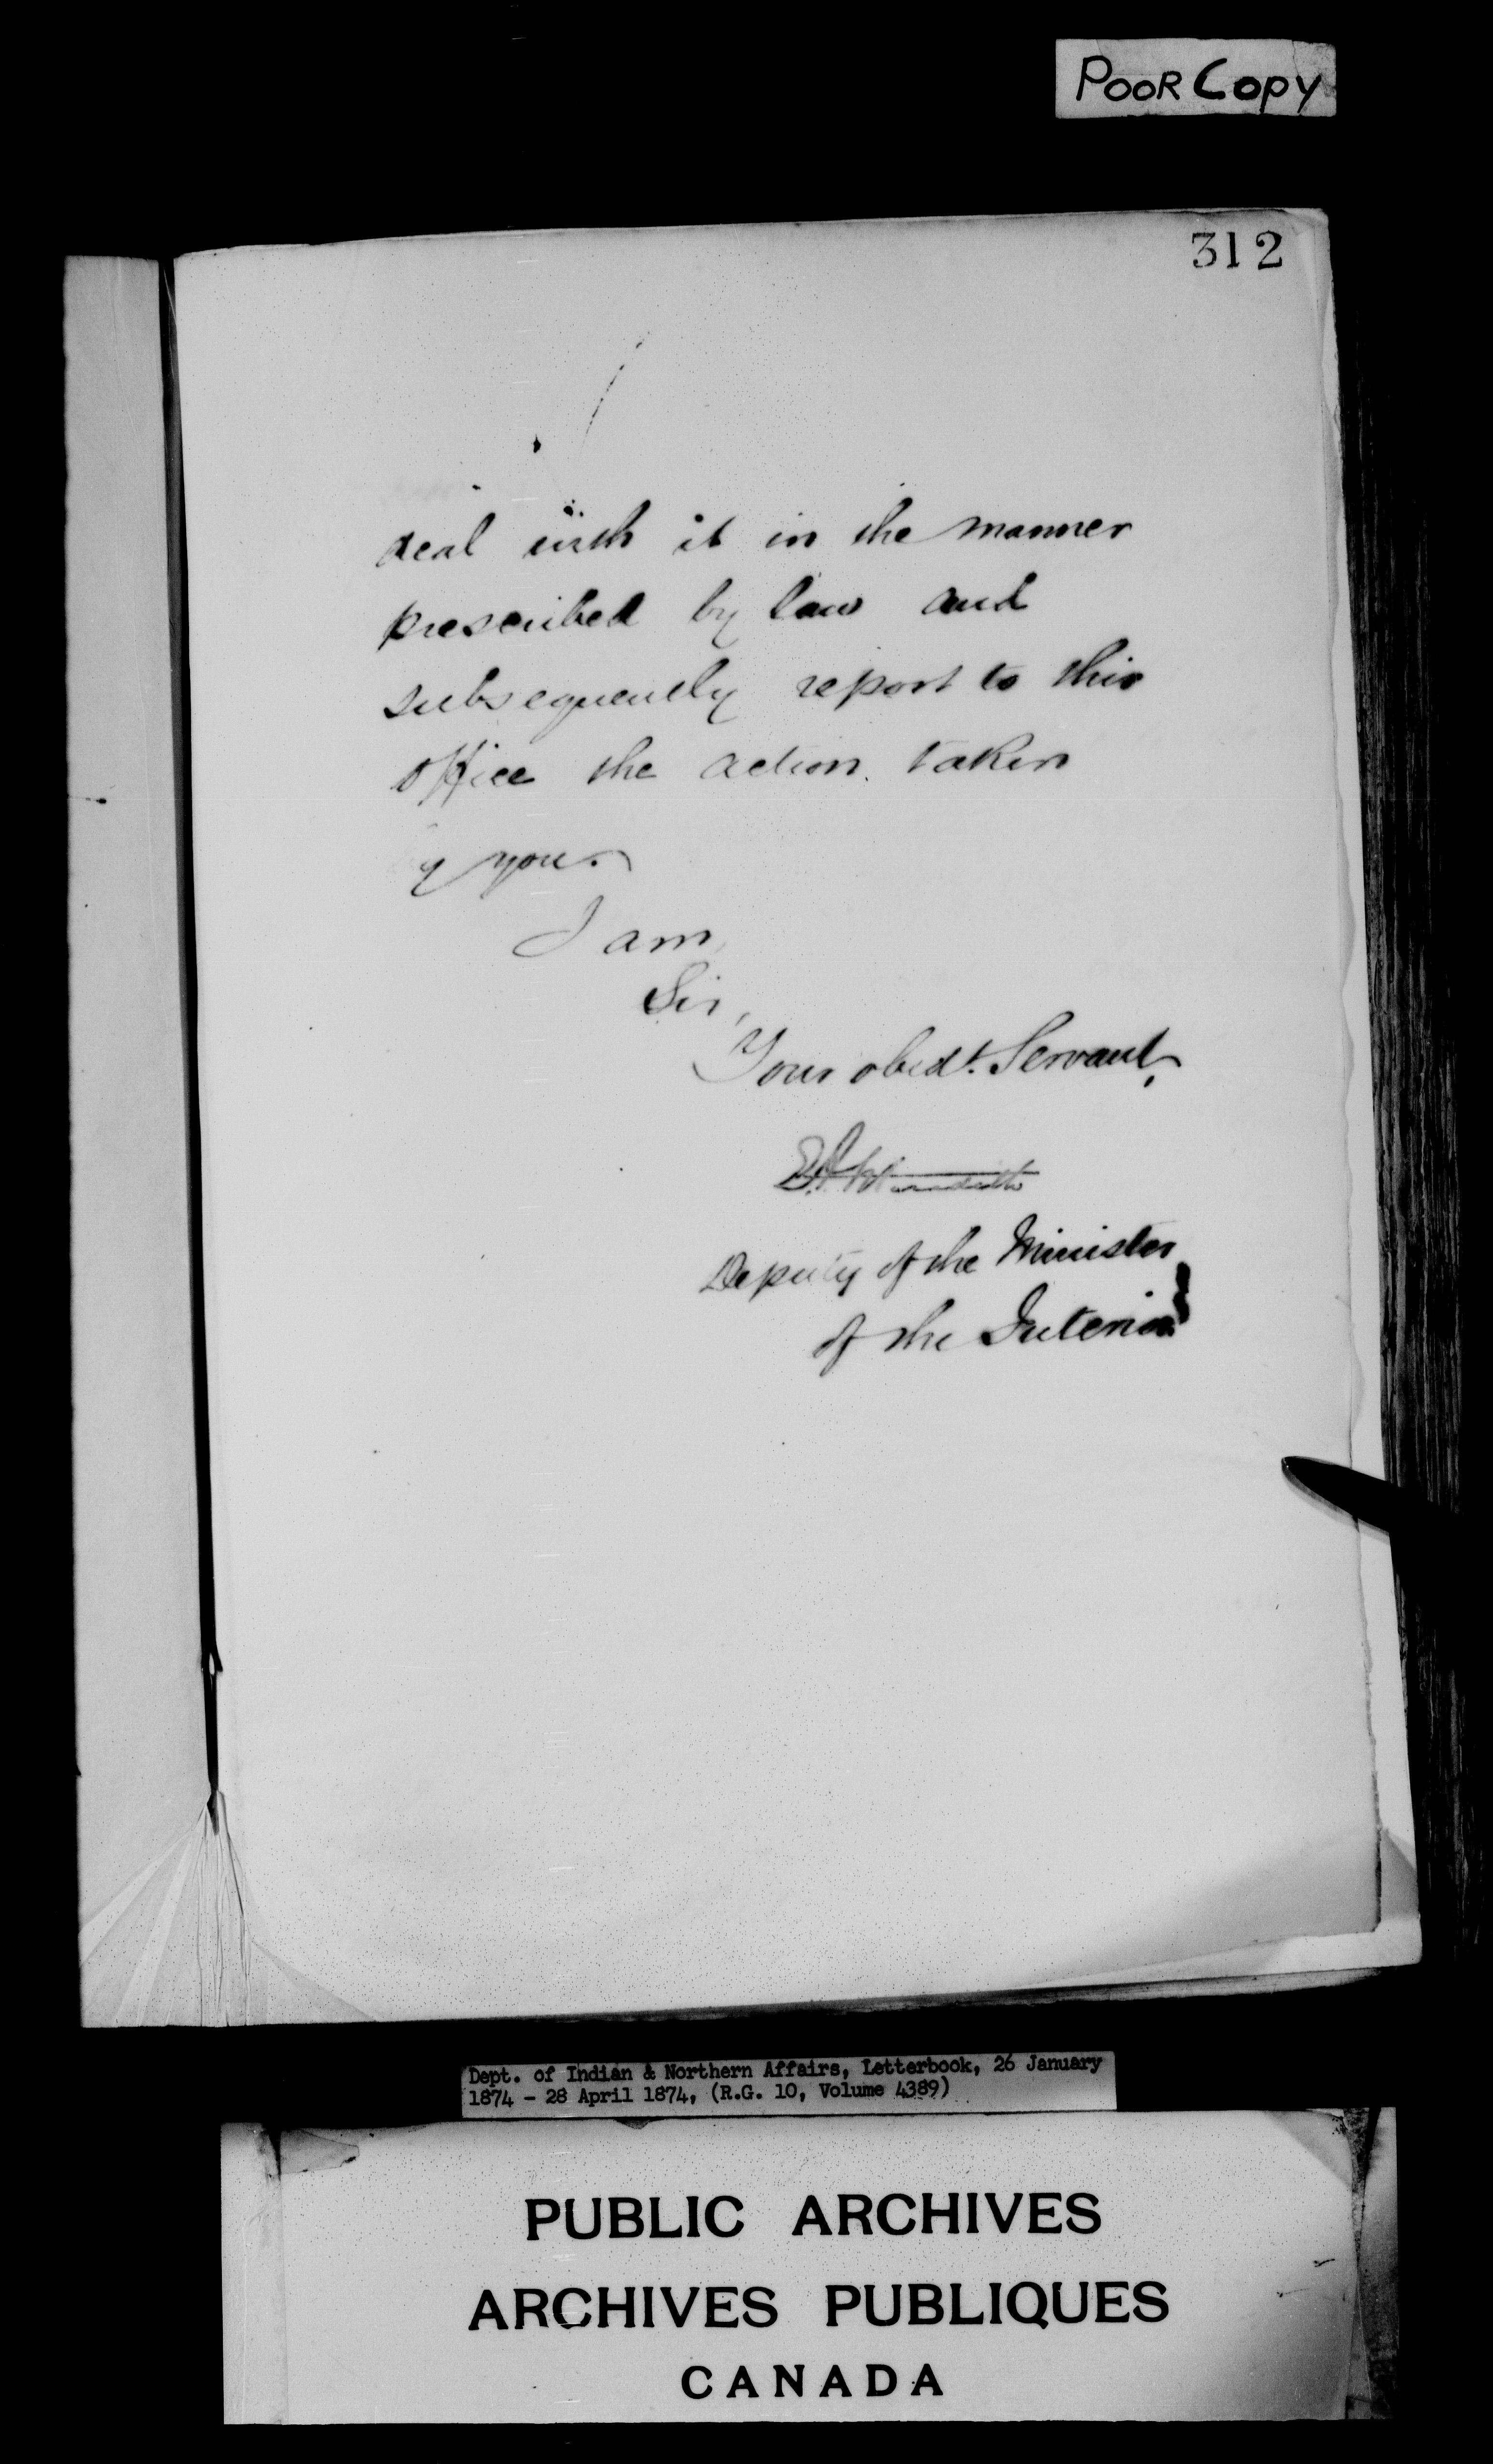 POOR COPY
312
deal with it in the manner
prescribed by law and
subsequently report to this
office the action taken
by you.
I am,
Sir,
Your obedt. Servant,
Deputy of the Minister
of the Interior
Dept. of Indian & Northern Affairs, Letterbook, 26 January
1874 - 28 April 1874, (R.G. 10, Volume 4389)
PUBLIC ARCHIVES
ARCHIVES PUBLIQUES
CANADA